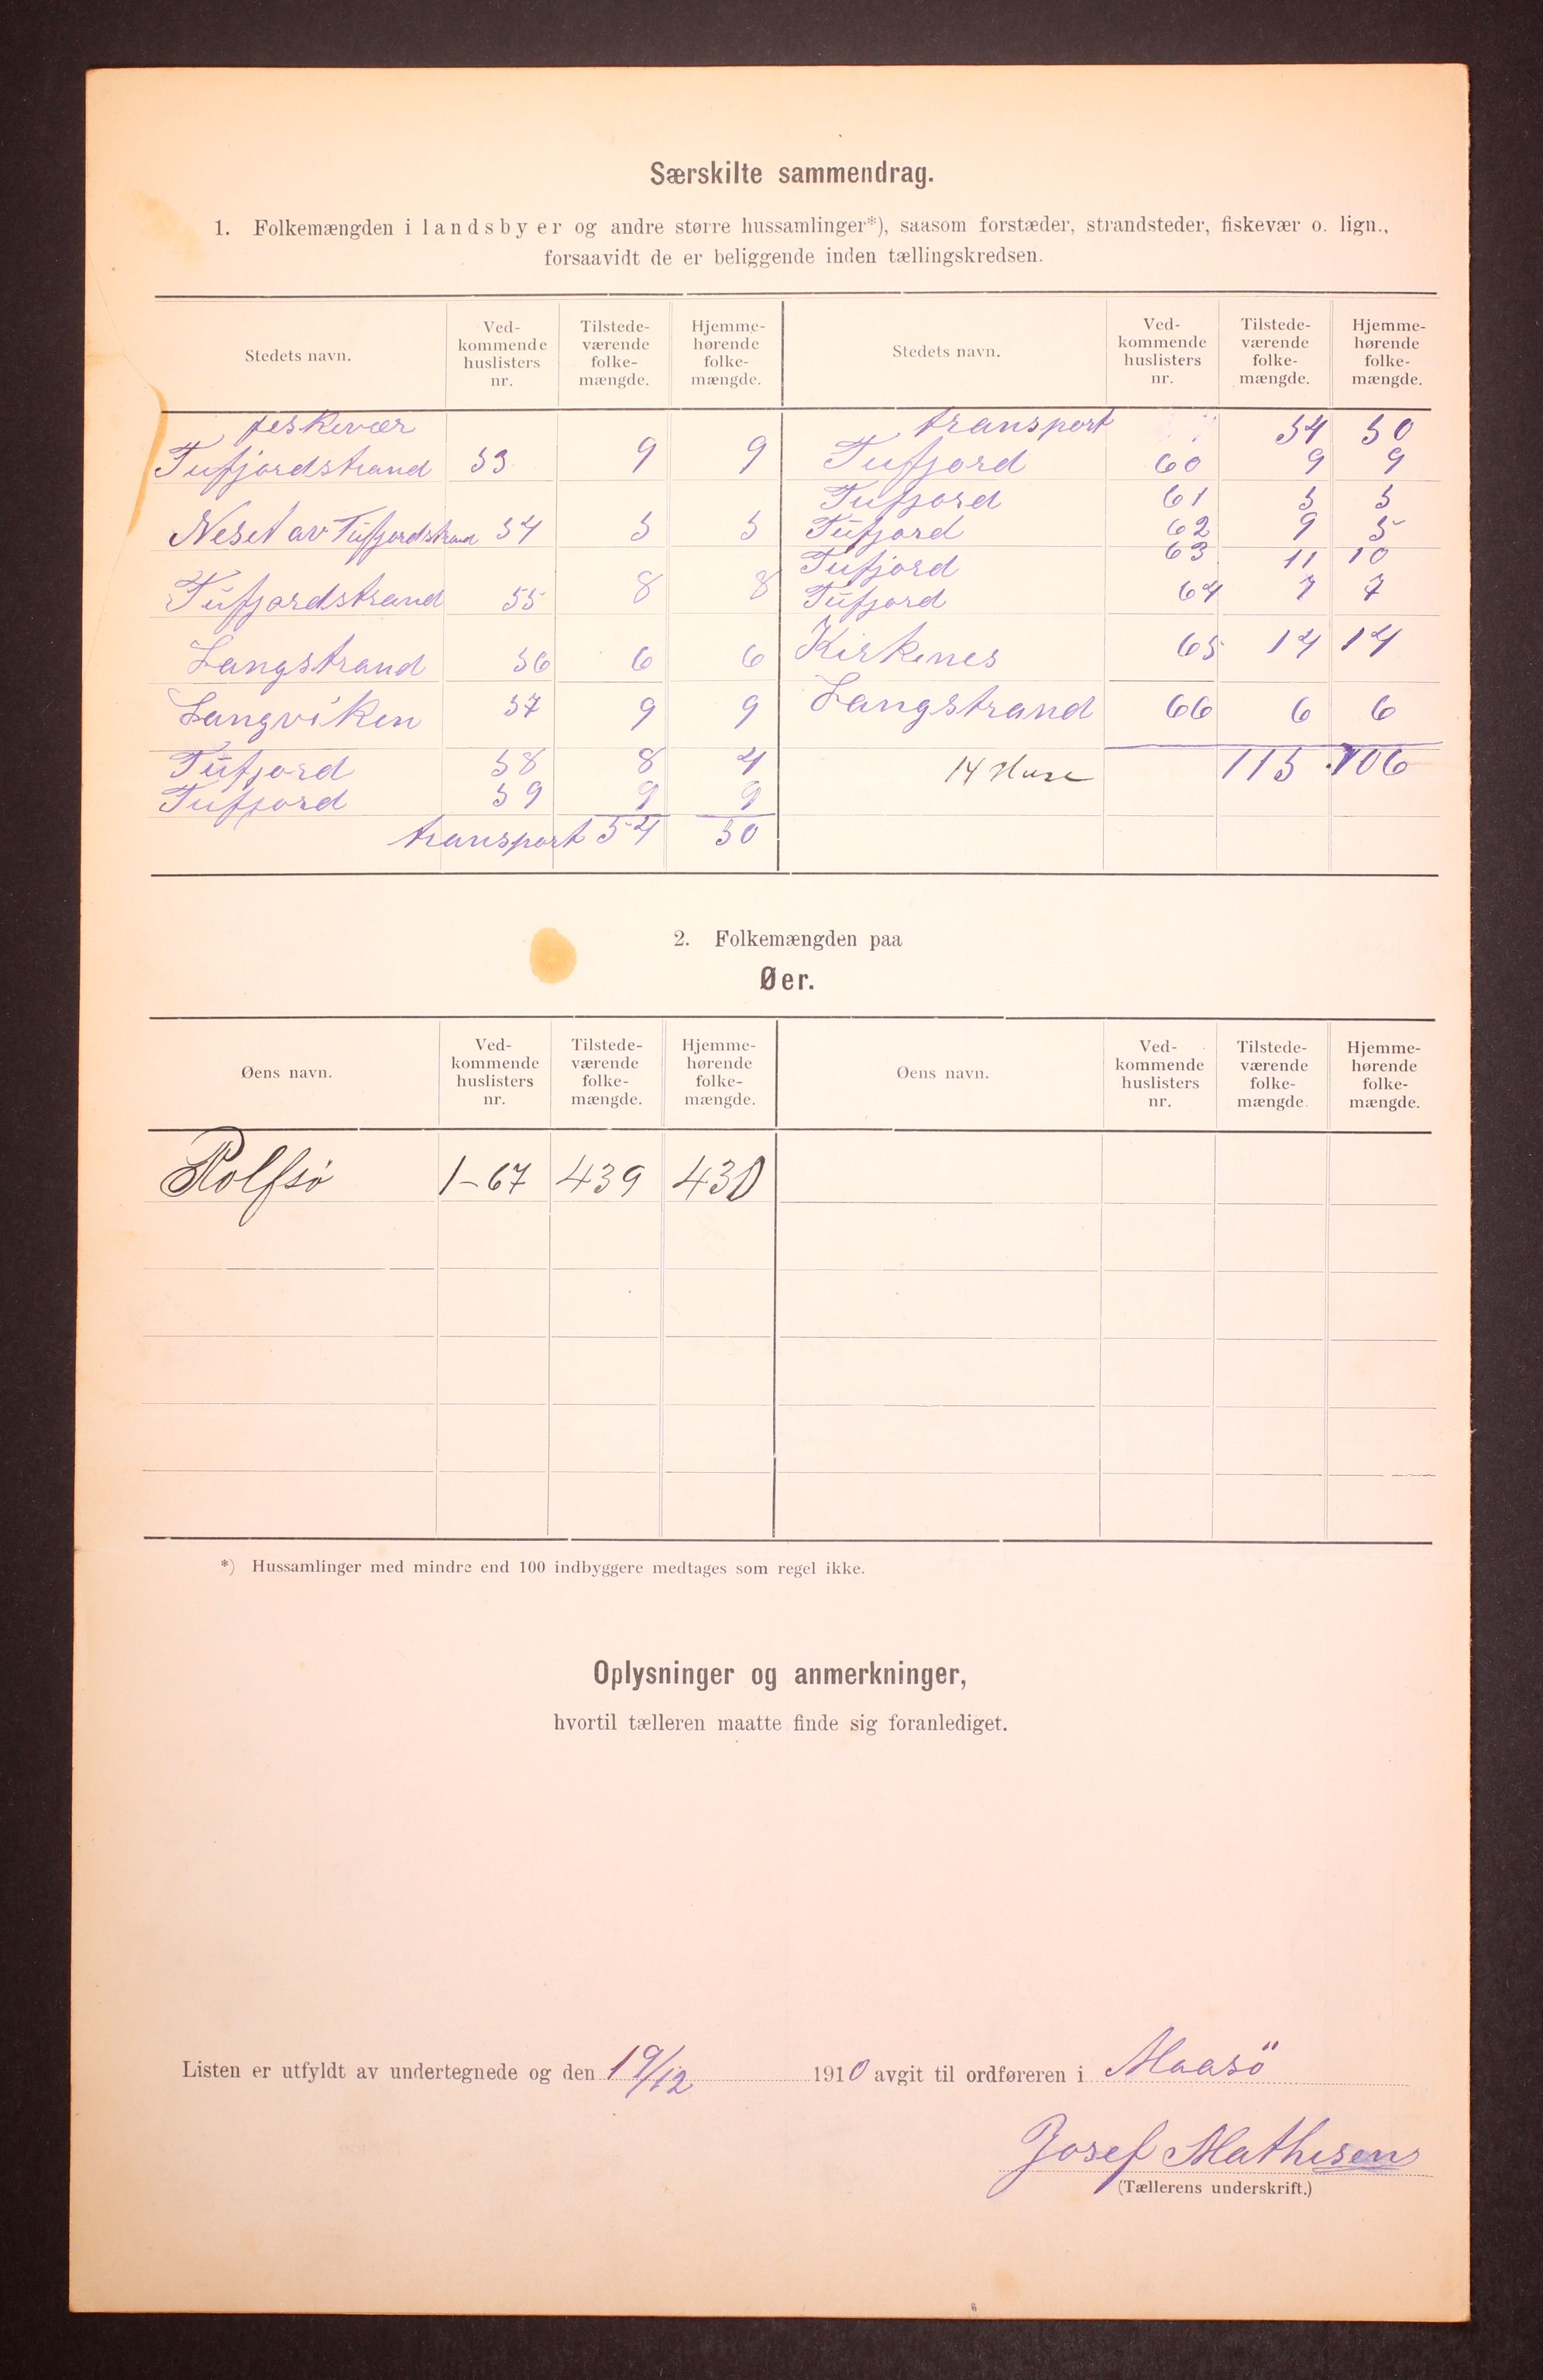 Særskilte sammendrag.
1. Folkemængden i landsbyer og andre større hussamlinger*), saasom forstæder, strandsteder, fiskevær o. lign.,
forsaavidt de er beliggende inden tællingskredsen.
Stedets navn. Ved-kommende huslisters nr. Tilstede-værende folke-mængde. Hjemme-hørende folke-mængde. Stedets navn. Ved-kommende huslisters nr. Tilstede-værende folke-mængde. Hjemme-hørende folke-mængde.
feskevær
Tufjordstrand 53 9 9
Neset av Tufjordstrand 54 5 5
Tufjordstrand 55 8 8
Langstrand 56 6 6
Langviken 57 9 9
Tufjord 58 8 4
Tufjord 59 9 9
transport 54 50
transport 54 50
Tufjord 60 9 9
Tufjord 61 5 5
Tufjord 62 9 5
Tufjord 63 11 10
Tufjord 64 7 7
Kirkenes 65 14 14
Langstrand 66 6 6
14 Huse 115 106
2. Folkemængden paa
Øer.
Øens navn. Ved-kommende huslisters nr. Tilstede-værende folke-mængde. Hjemme-hørende folke-mængde. Øens navn. Ved-kommende huslisters nr. Tilstede-værende folke-mængde. Hjemme-hørende folke-mængde.
Rolfsö 1-67 439 430
*) Hussamlinger med mindre end 100 indbyggere medtages som regel ikke.
Oplysninger og anmerkninger,
hvortil tælleren maatte finde sig foranlediget.
Listen er utfyldt av undertegnede og den 19/12 1910 avgit til ordføreren i Maasö
Josef Mathisen
(Tællerens underskrift.)